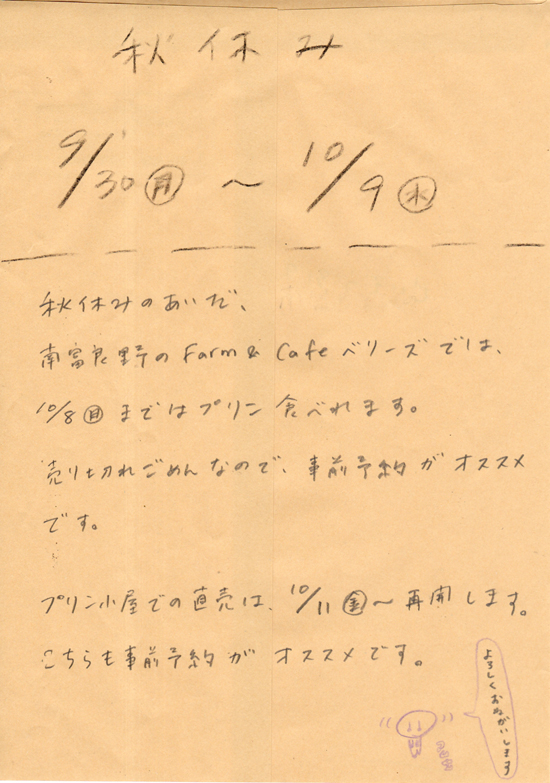 秋休み
9/30㊊ 〜 10/9㊌
秋休みのあいだ、
南富良野のFarm & Cafe ベリーズでは、
10/8㊊まではプリン食べれます。
売り切れごめんなので、事前予約がオススメ
です。
プリン小屋での直売は、10/11㊎〜再開します。
こちらも事前予約がオススメです。
よろしくおねがいします